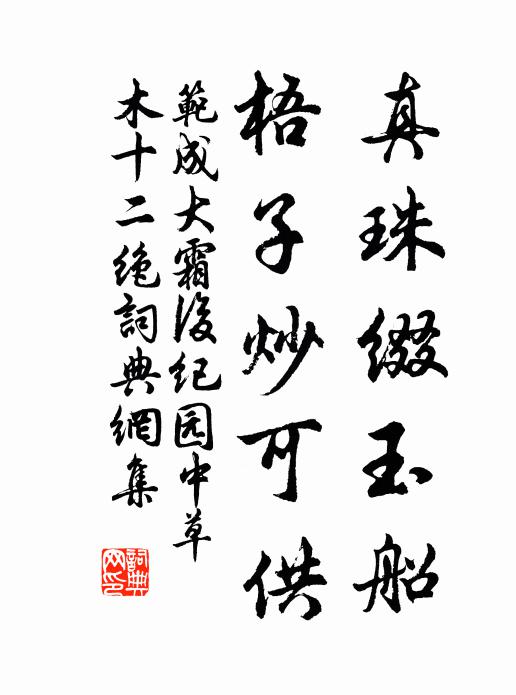 真珠缀玉船
梧子炒可供
範成大霜後纪园中草
木十二绝詞典網集
詞典
网印